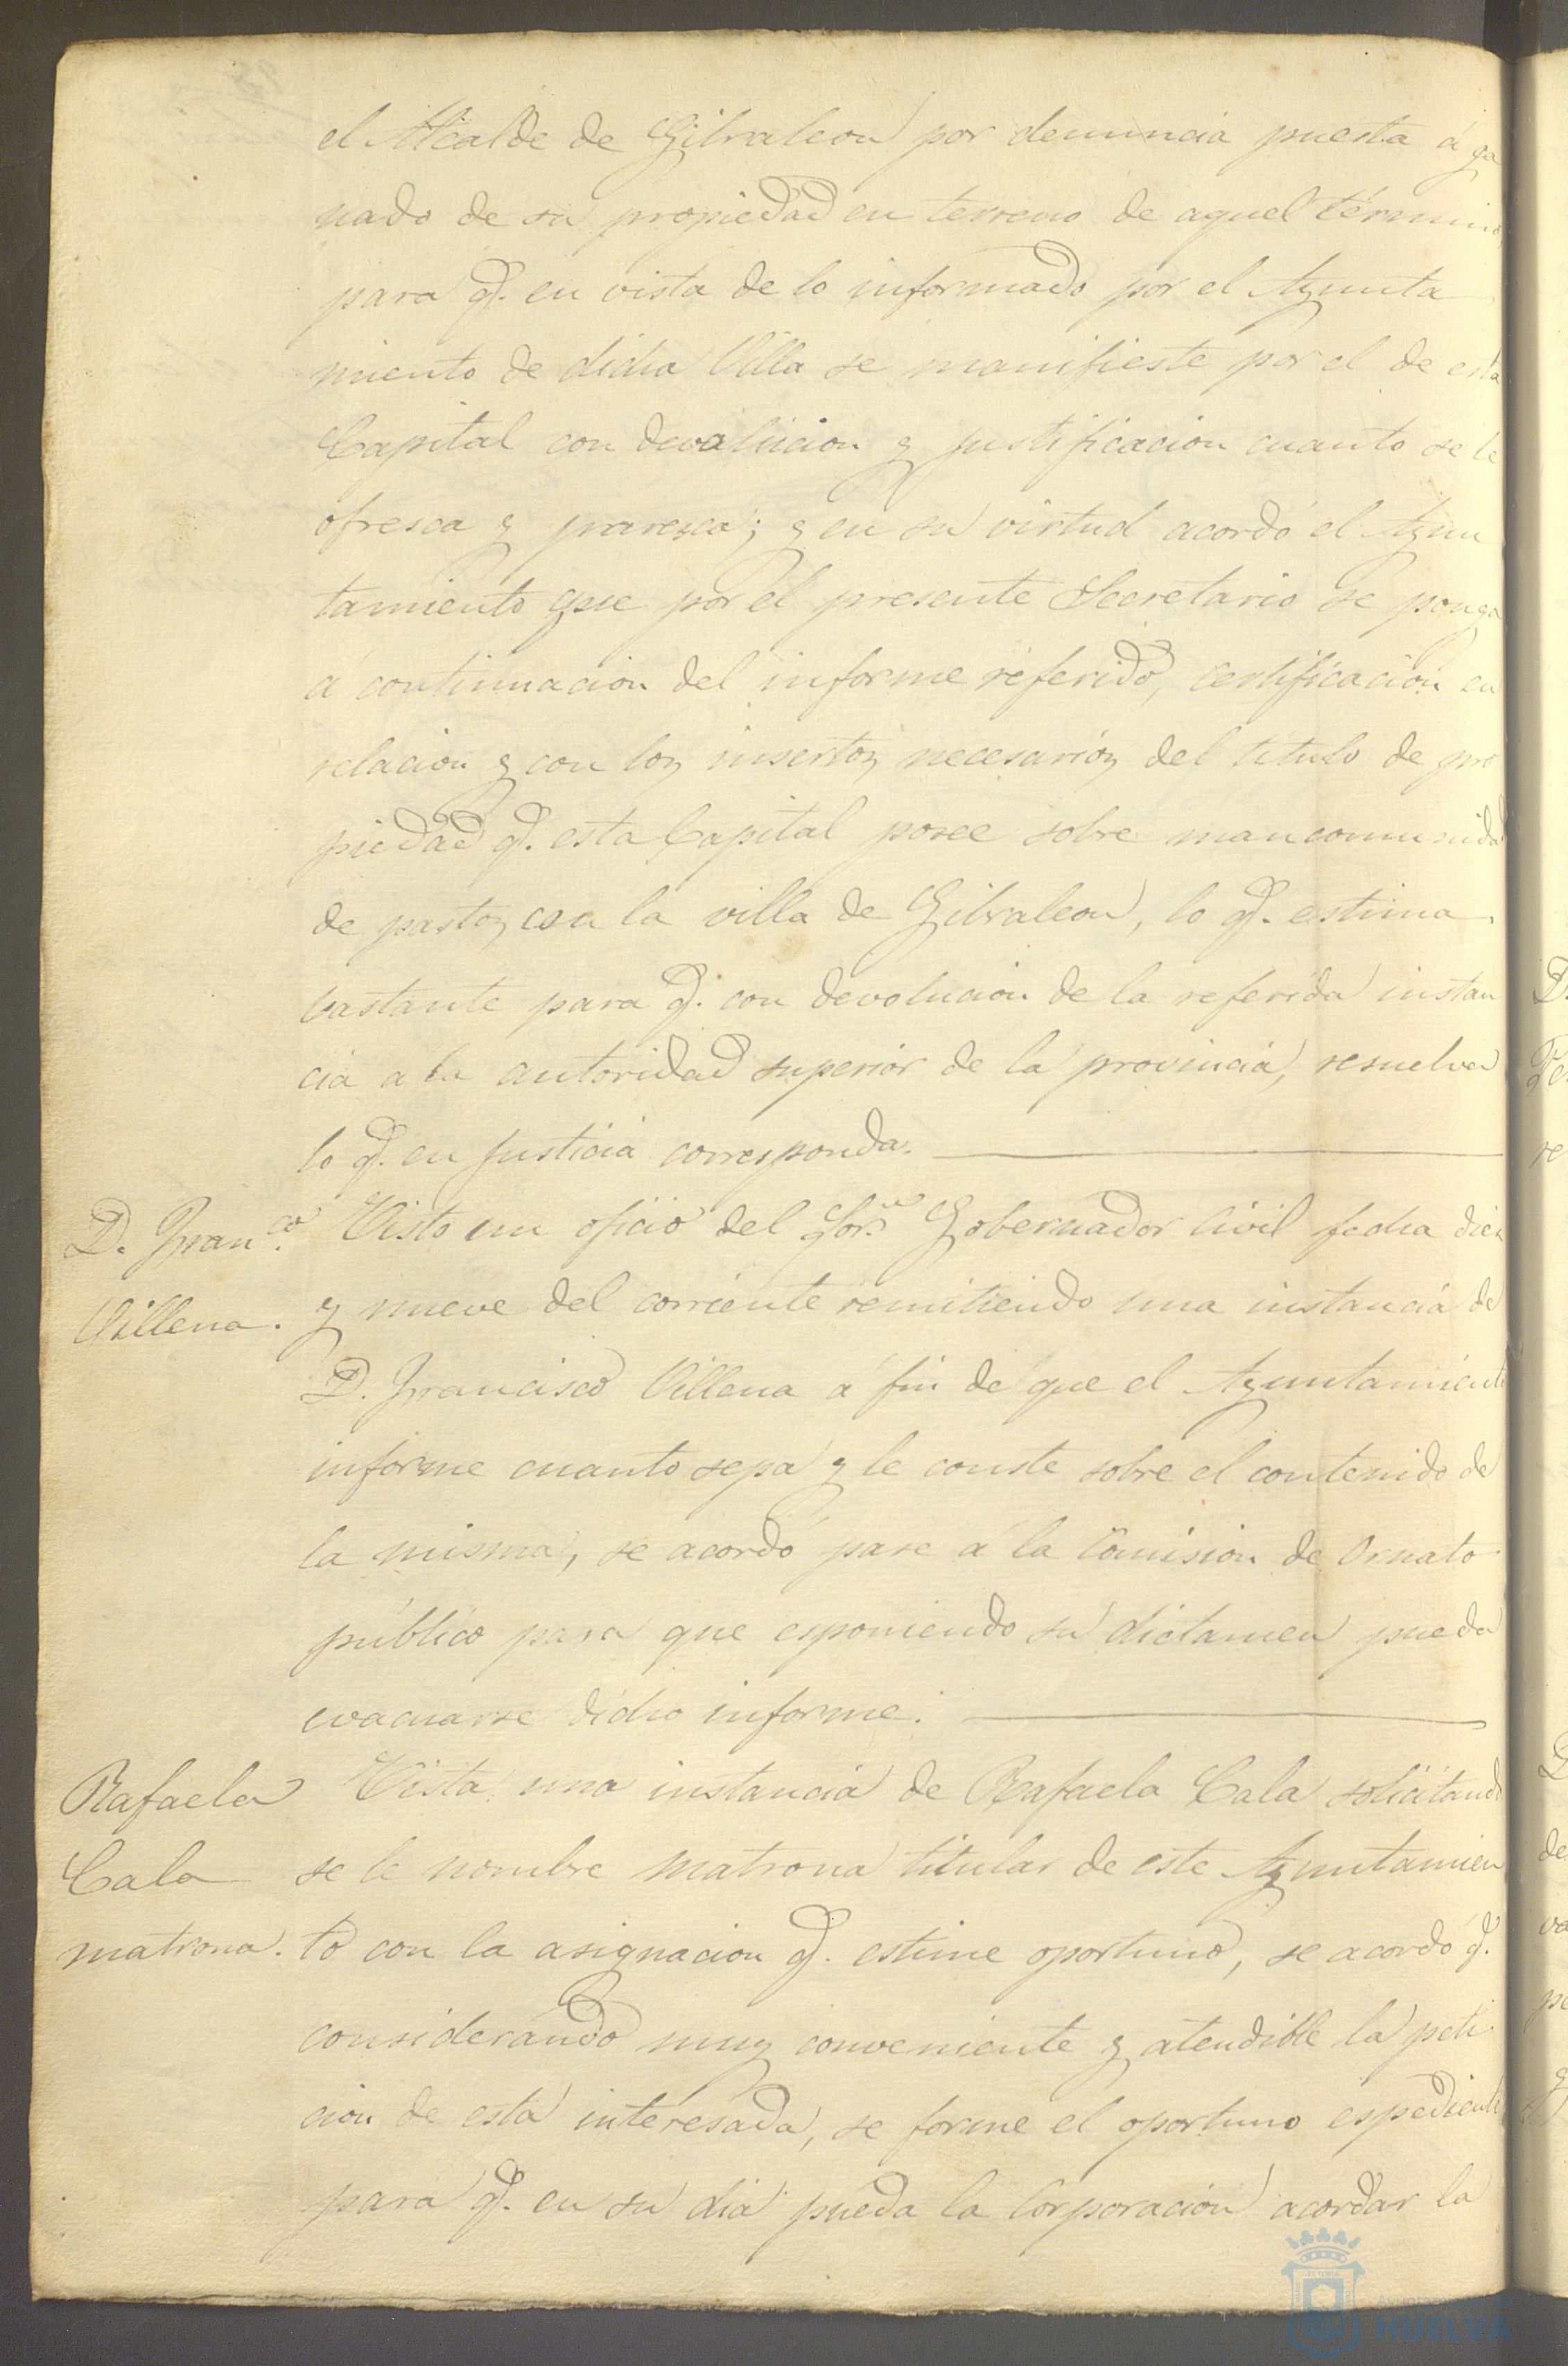 el Alcalde de Gibraleon por denuncia puesta á ga
nado de su propiedad en terreno de aquel término,
para q.e en vista de lo informado por el Ayunta
miento de dicha Villa se manifieste por el de esta
Capital con devolucion y justificacion cuanto se le
ofresca y paresca; y en su virtud acordó el Ayun
tamiento que por el presente Secretario se ponga
á continuacion del informe referido, certificacion en
relacion y con los insertos necesarios del titulo de pro
piedad q.e esta Capital posee sobre mancomunidad
de pastos con la villa de Gibraleon, lo q.e estima
bastante para q.e con devolucion de la referida instan
cia a la autoridad superior de la provincia, resuelva
lo q.e en justicia corresponda.
D. Fran.co
Villena.
Visto un oficio del Sor. Gobernador Civil fecha diez
y nueve del corriente remitiendo una instancia de
D. Francisco Villena á fin de que el Ayuntamiento
informe cuanto sepa y le conste sobre el contenido de
la misma, se acordó pase á la Comision de Ornato
público para que esponiendo su dictamen pueda
evacuarse dicho informe.
Rafaela
Cala
matrona.
Vista una instancia de Rafaela Cala solicitando
se le nombre matrona titular de este Ayuntamien
to con la asignacion q.e estime oportuno, se acordó q.e
considerando muy conveniente y atendible la peti
cion de esta interesada, se forme el oportuno espediente
para q.e en su dia pueda la Corporacion acordar la
HUELVA